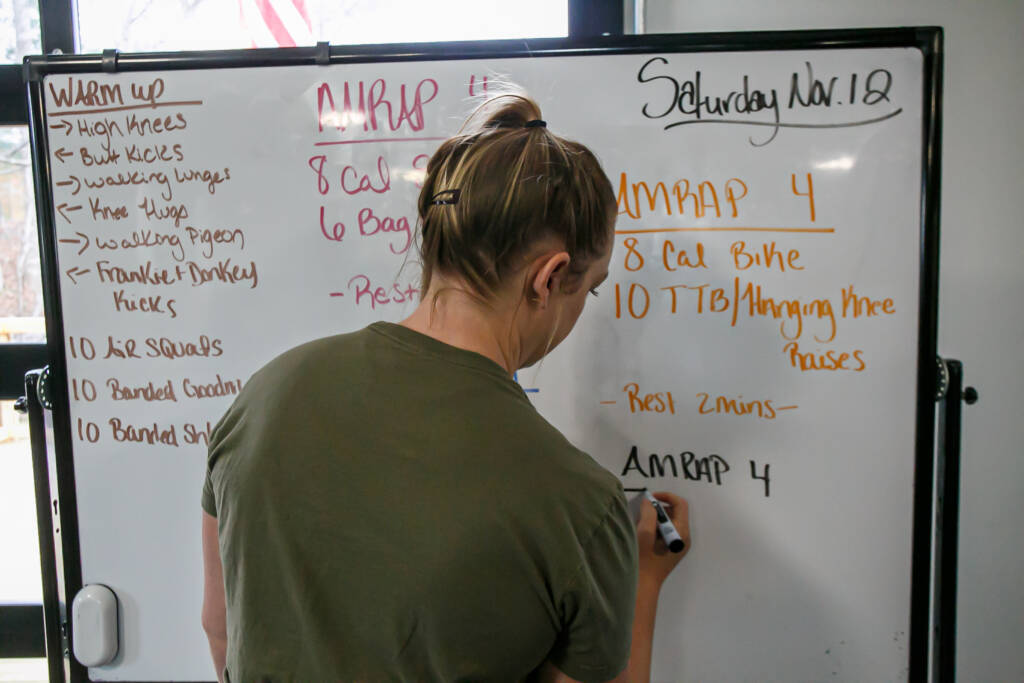 WARM UP
→ High Knees
← Butt Kicks
→ Walking Lunges
← Knee Hugs
→ Walking Pigeon
← Frankie + Donkey
Kicks
10 Air Squats
10 Banded
10 Banded
AMRAP 4
8 Cal
6 Bag
- Rest
Saturday Nov. 12
AMRAP 4
8 Cal Bike
10 TTB/Hanging Knee
Raises
- Rest 2mins -
AMRAP 4